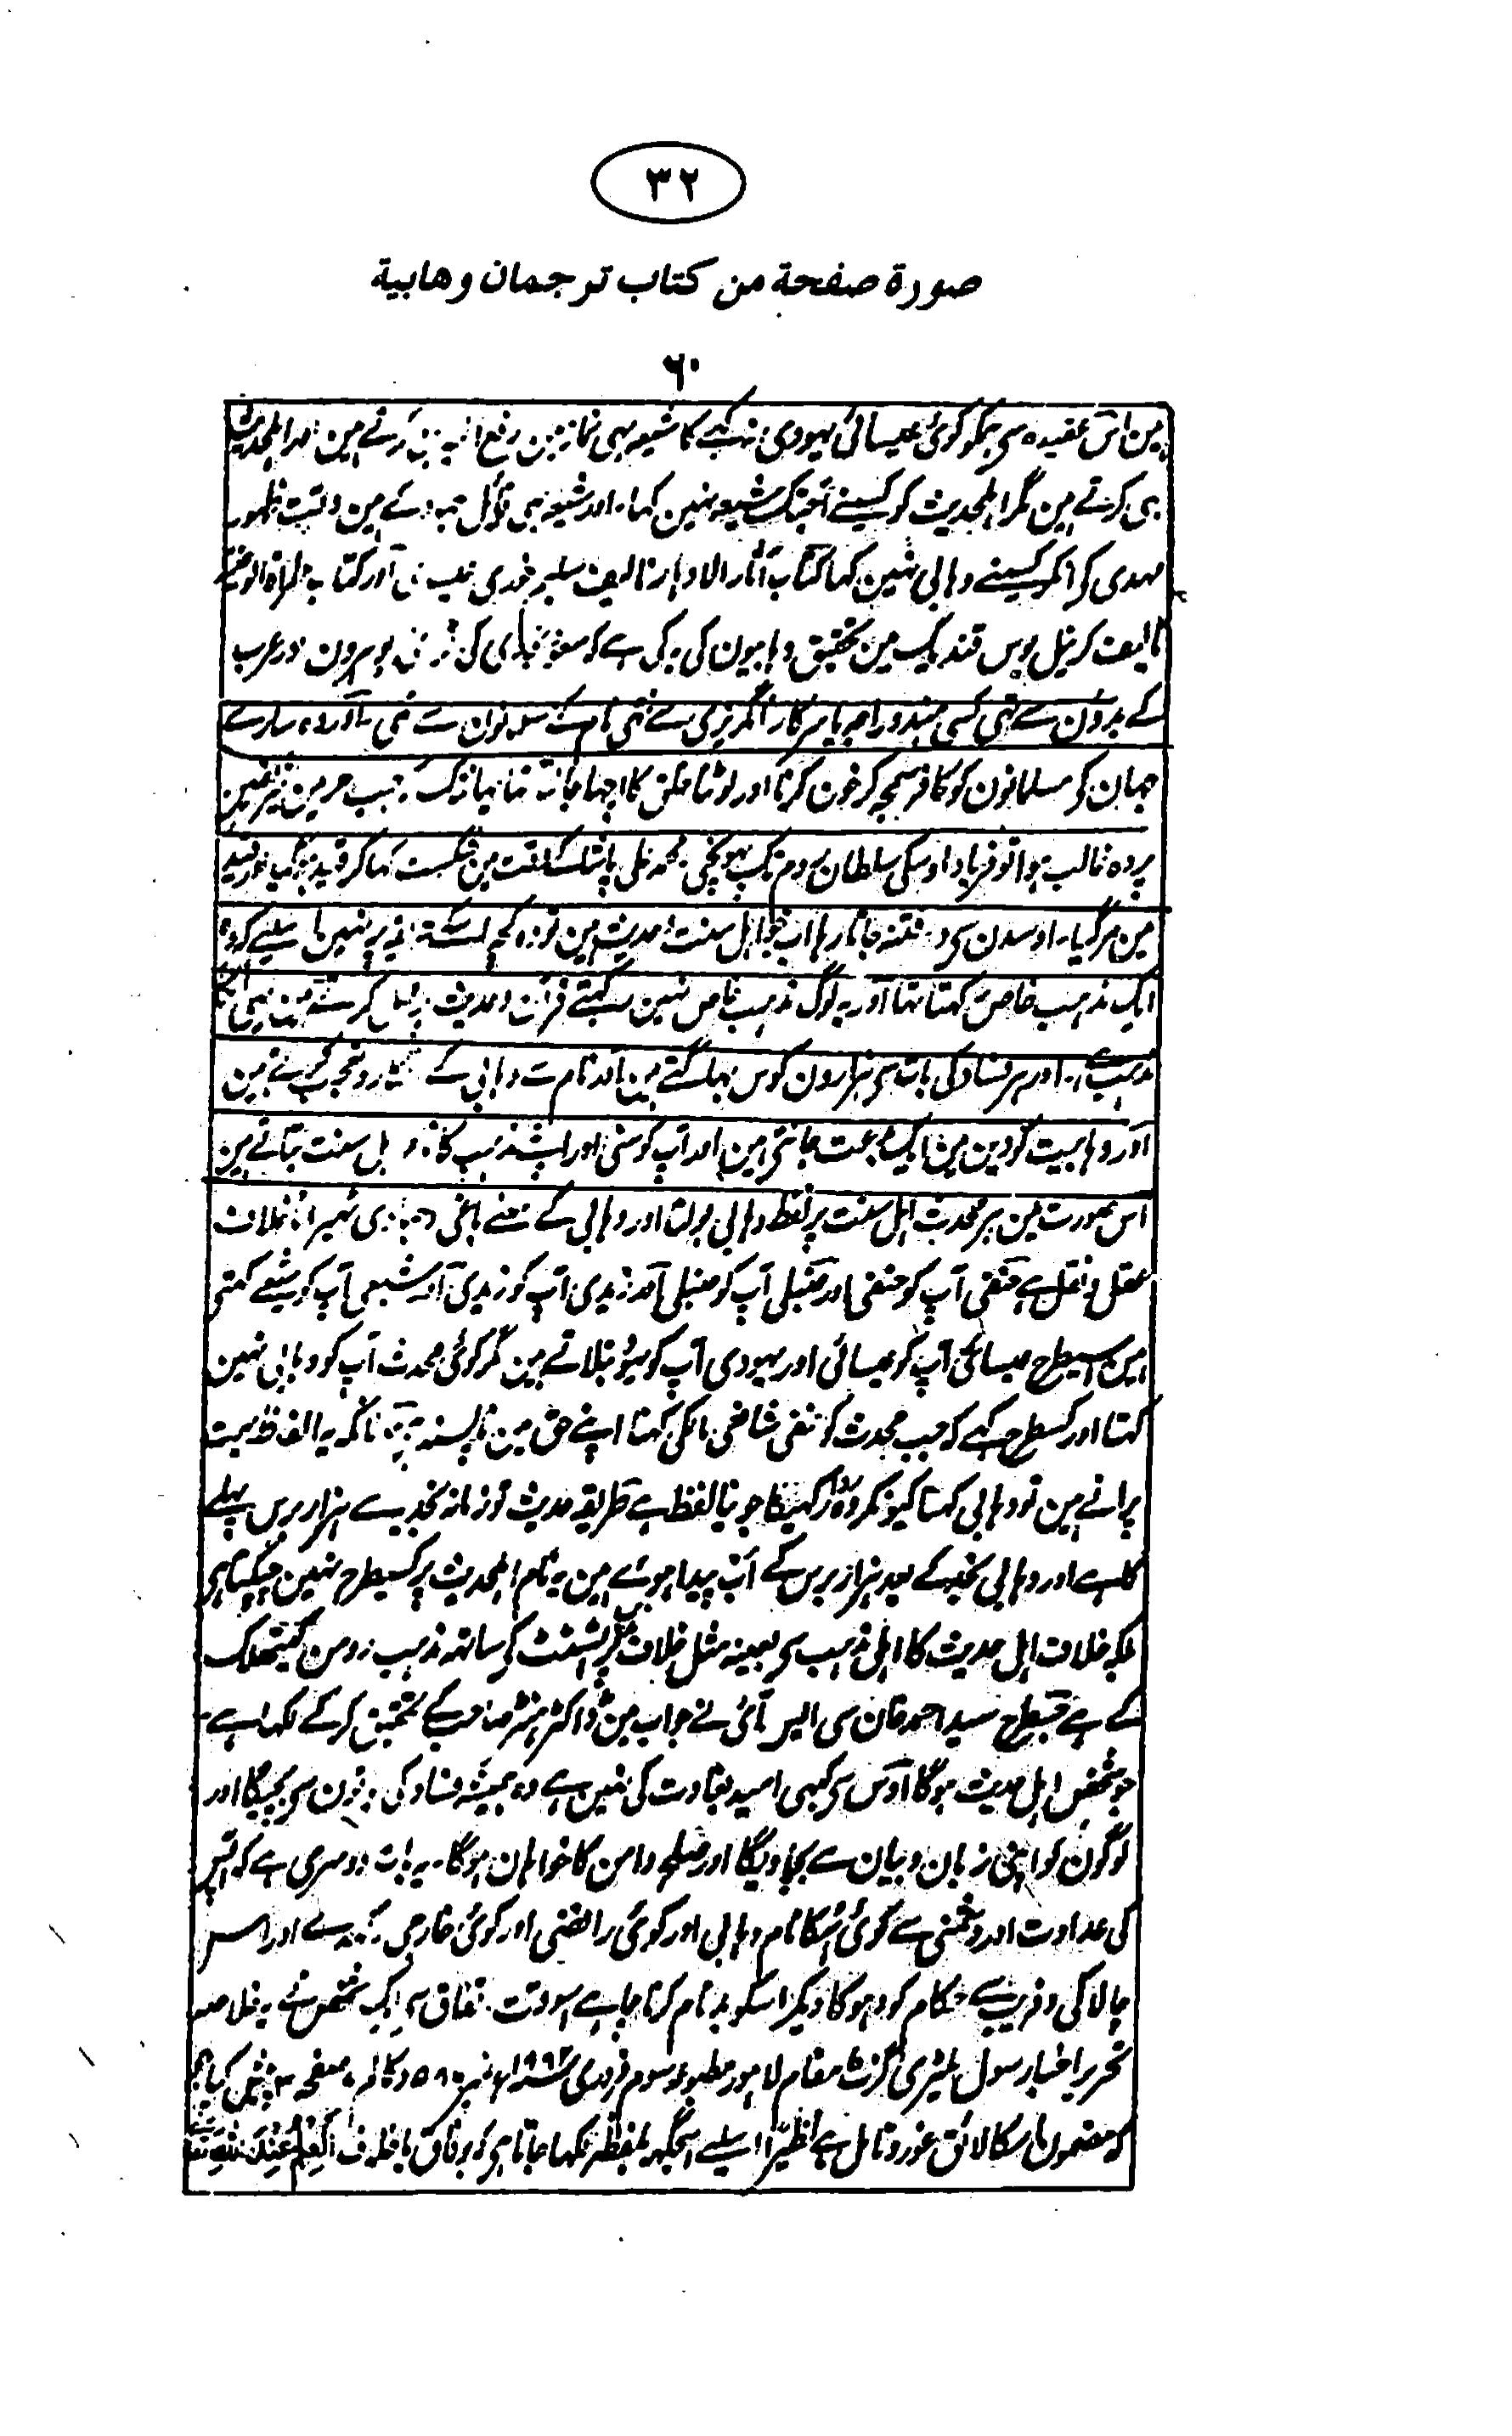 ٣٢
صورة صفحة من كتاب ترجمان وهابية
٦٠
ہین اس عقیدہ سی ہمکو کوئی عیسائی یہودی نہ کہے گا شیعہ بہی نماز مین رفع کرتے ہین اور اہلحدیث
بہی کرتے ہین مگر اہلحدیث کو کسینے آجتک شیعہ نہین کہا۔ اور شیعہ بہی قائل کے ہین وقت ظہور
مہدی کر انکو کسینے وہابی نہین کہا کتاب آثار الادہار تالیف سلیم خوری مین اور کتاب
تالیف کرنیل مین تحقیق وہابیون کی یہ کی ہے کہ کی عرب
کے بدوؤن سے تہی کسی ہندو راجہ یا سرکار انگریزی سے نہ تہی نام کے مسلمانون سے تہی اور وہ سارے
جہان کے مسلمانون کو کافر سمجہ کر خون کرنا اور لوٹنا خلق کا اچہا جانتا تہا یہانتک کہ جب حرمین شریفین
پر وہ غالب ہوا تو فریاد اوسکی سلطان روم تک پہونچی محمد علی پاشا کے وقت مین شکست کہا کر قید ہو گیا اور قید
مین مرگیا۔ اوسدن سی وہ فتنہ جاتا رہا اب اہل سنت حدیث مین تو وہ کچہ پر نہین اسلیے کہ وہ
ایک مذہب خاص رکہتا تہا اور یہ لوگ مذہب خاص نہین رکہتے قرآن و حدیث پر عمل کرتے ہین یہی
مذہب ہے۔ اور ہر فساد کی بات سی ہزارون کوس بہاگتے ہین اور نام سے وہابی کے کرتے ہین
اور وہابیت کو دین مین ایک بدعت جانتی ہین اور آپ کو سنی اور اپنے مذہب کا نام اہل سنت بتاتے ہین
اس صورت مین ہر محدث اہل سنت پر لفظ وہابی بولنا اور وہابی کے معنے باغی و ٹہیرانا خلاف
عقل و نقل ہے حنفی آپ کو حنفی اور حنبلی آپ کو حنبلی اور زیدی آپ کو زیدی اور شیعی آپ کو شیعے کہتی
ہین اسیطرح عیسائی آپ کو عیسائی اور یہودی آپ کو یہود بتلاتے ہین مگر کوئی محدث آپ کو وہابی نہین
کہتا اور کسطرح کہے کہ جب محدث کو حنفی شافعی مالکی کہنا اپنے حق مین ناپسند ہے حالانکہ یہ الفاظ بہت
پرانے ہین تو وہابی کہنا کیونکر روا رکہیگا جو نیا لفظ ہے طریقہ حدیث تو زمانہ نجدیہ سے ہزار برس پہلے
کا ہے اور وہابی نجد کے بعد ہزار برس کے اب پیدا ہوئے ہین یہ نام اہلحدیث پر کسیطرح نہین چپکتا ہی
بلکہ خلاف اہل حدیث کا اہل مذہب سی بعینہ مثل خلاف مذہب پرٹسٹنٹ کے ساتہہ مذہب رومن کیتہلک
کے ہے جسطرح سید احمد خان سی ایس آئی نے جواب مین ڈاکٹر ہنٹر صاحب کے تحقیق کرکے لکہا ہے
جو شخص اہل حدیث ہوگا اوس سی کبہی امید بغاوت کی نہین ہے وہ ہمیشہ فساد کی باتون سی بچیگا اور
لوگون کو اپنی زبان و بیان سے بچاویگا اور صلح و امن کا خواہان ہوگا۔ یہ بات دوسری ہے کہ
کی عداوت اور دشمنی سے کوئی اسکا نام وہابی اور کوئی رافضی اور کوئی خارجی رکہدے اور اس
چالاکی و فریب سے حکام کو دہوکا دیکر اسکو بدنام کرنا چاہے اسوقت اتفاق سی ایک شخص نے یہ خلاصہ
تحریر اخبار سول ملیٹری گزٹ مقام لاہور مطبوعہ سوم فروری نمبر ٥٨ صفحہ ٣ پیش کیا ہی
کہ مضمون اسکا لائق غور و تامل ہے اسلیے اسجگہہ بلفظہ لکہا جاتا ہی العلم عند اللہ